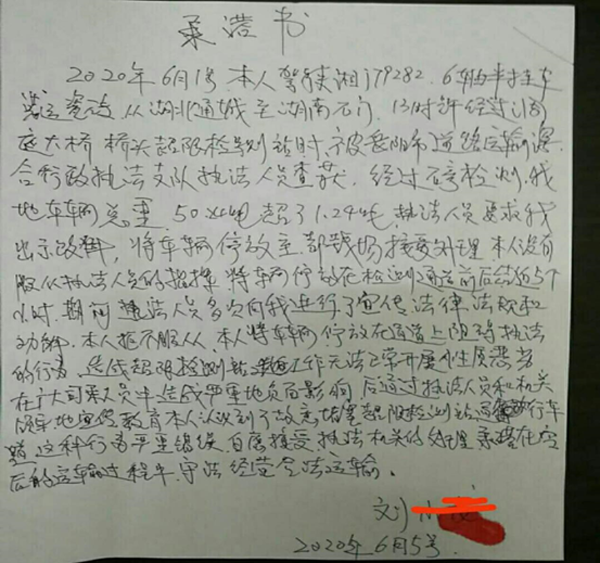 承诺书
2020年6月1号.本人驾驶湘J79282.6轴半挂车
装运瓷砖.从湖北通城至湖南石门.13时许经过洞
庭大桥桥头超限检测站时.被岳阳市道路运输综
合行政执法支队执法人员查获.经过磅检测.我
地车车辆总重.50.24吨超了1.24吨,执法人员要求我
出示,将车辆停放至.卸载场接受处理.本人没有
服从执法人员的指挥.将车辆停放在检测通道前后结近5个
小时.期间执法人员多次向我进行了宣传法律法规和
功解.本人拒不服从.本人将车辆停放在通道上阻碍执法
的行为.造成超限检测站工作无法正常开展性质恶劣
在广大司乘人员中造成严重地负面影响.后通过执法人员和机关
领导地宣传教育本人认识到了故意堵塞超限检测站行车
道这种行为严重错误.自愿接受.执法机关的处理承诺在今
后的运输过程中.守法经营合法运输。
刘小
2020年6月5号.